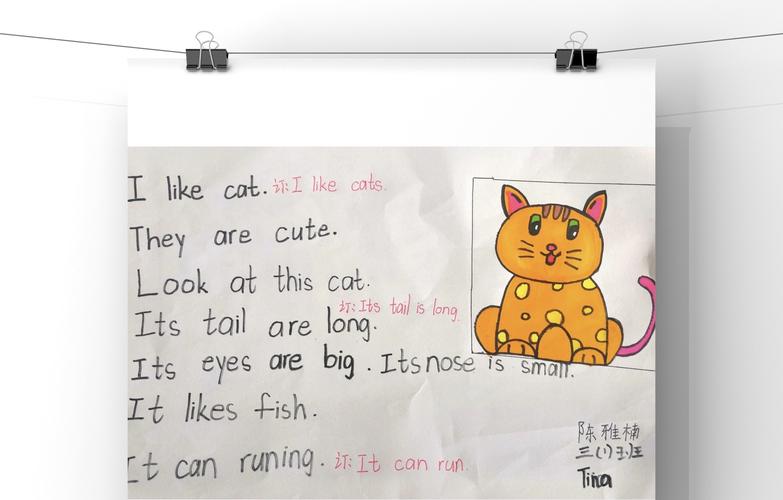 I like cat. 订: I like cats.
They are cute.
Look at this cat.
订: Its tail is long.
Its tail are long.
Its eyes are big. Its nose is small.
It likes fish.
It can runing. 订: It can run.
陈雅楠
三(1)班
Tina